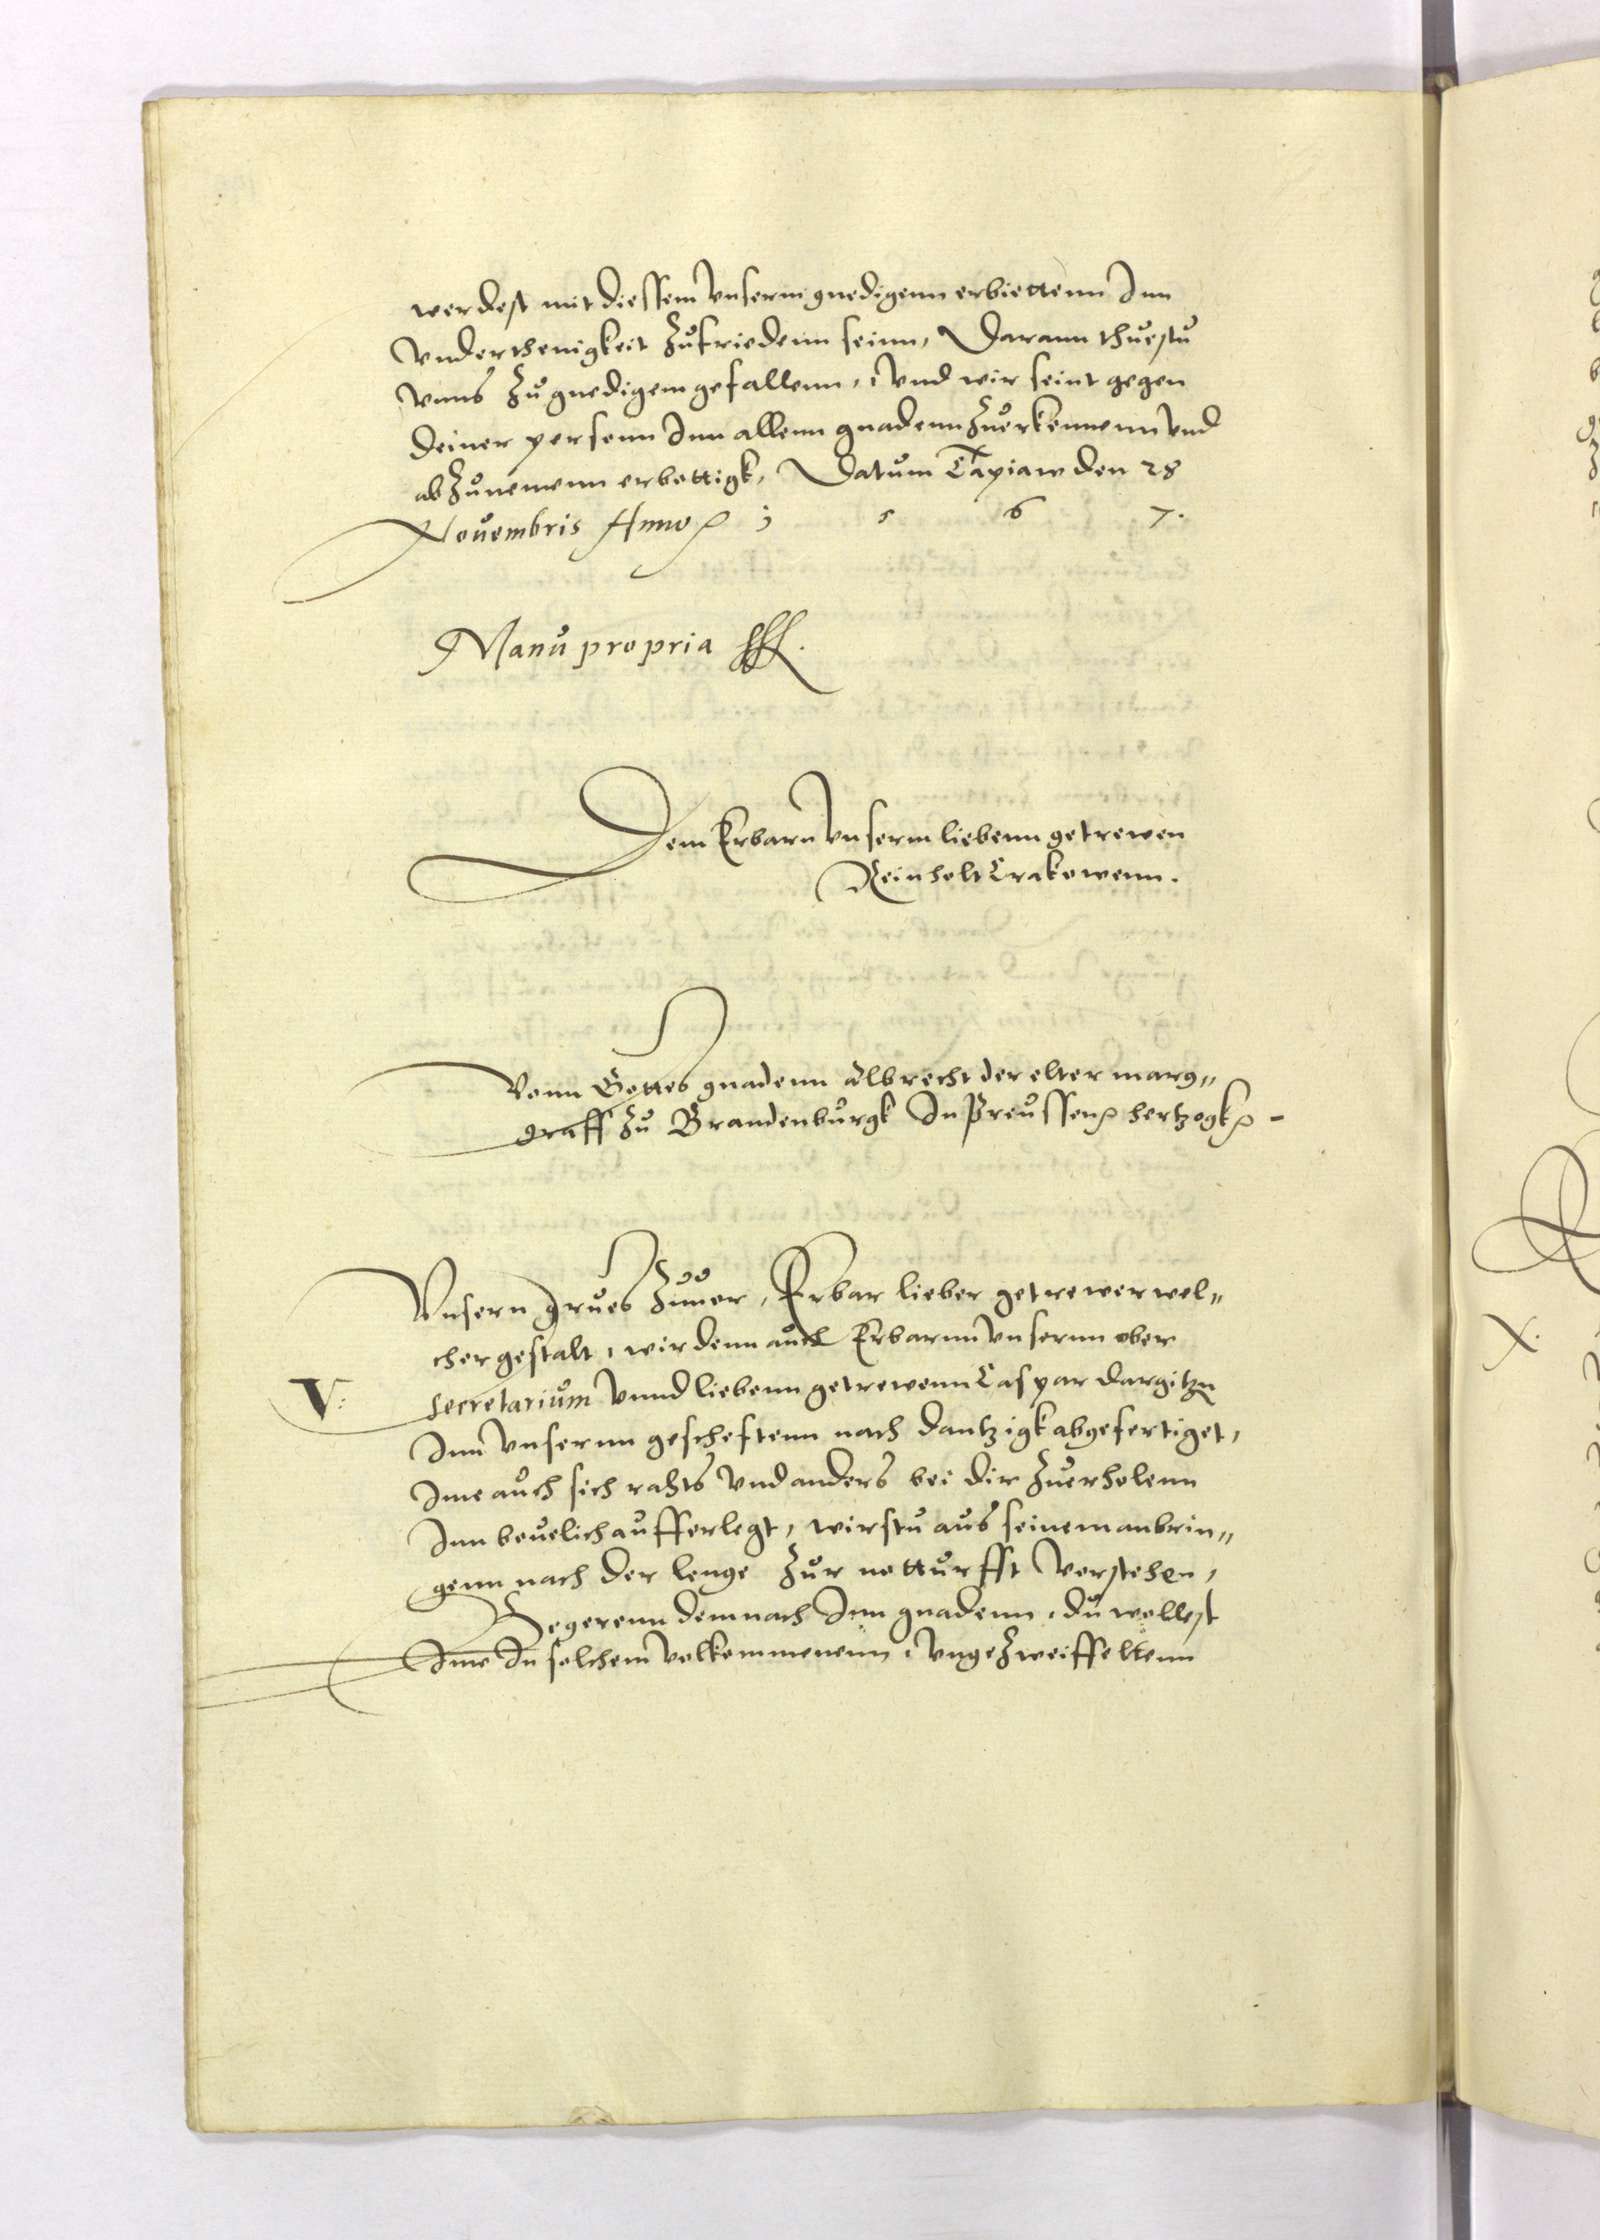 werdest mit diessem vnserm gnedigenn erbiettenn Inn
vnderthenigkeit zufriedenn seinn, Darann thuestu
vnns zu gnedigem gefallenn, vnd wir seint gegen
deiner personn Inn allenn gnadenn zuerkennenn vnd
abzunemenn erbottigk, Datum Tapiaw den 28
Nouembris Anno 1 5 6 7.
Manu propria
Dem Erbarn vnserm liebenn getrewen
Reinholt Crakowenn.
Vonn Gottes gnadenn Albrecht der elter marg„
graff zu Brandenburgk In Preussen hertzogk -
Vnsern grues zuuor, Erbar lieber getrewer wel„
cher gestalt, wir denn auch Erbarnn vnsernn ober
V: Secretarium vnnd liebenn getrewenn Caspar Dargitzn
Inn vnsernn gescheftenn nach Dantzigk abgefertiget,
Ime auch sich rahts vnd anders bei dir zuerholenn
Inn beuelich aufferlegt, wirstu aus seinem anbrin„
genn nach der lenge zur notturfft verstehen,
Begerenn demnach Inn gnadenn, du wollest
Ime In solchem volkommenenn, vngezweiffeltenn